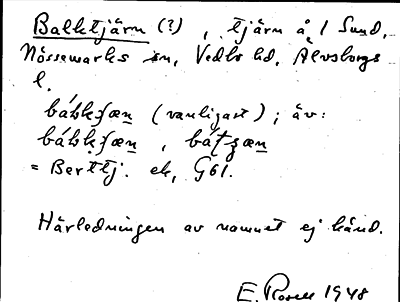 Balktjärn (?), tjärn å 1 Sund,
Nössemarks sn, Vedbo hd, Älvsborgs
l.
(vanligast); äv:
= Berttj. ek, G61.
Härledningen av namnet ej känd.
E. Rosell 1948